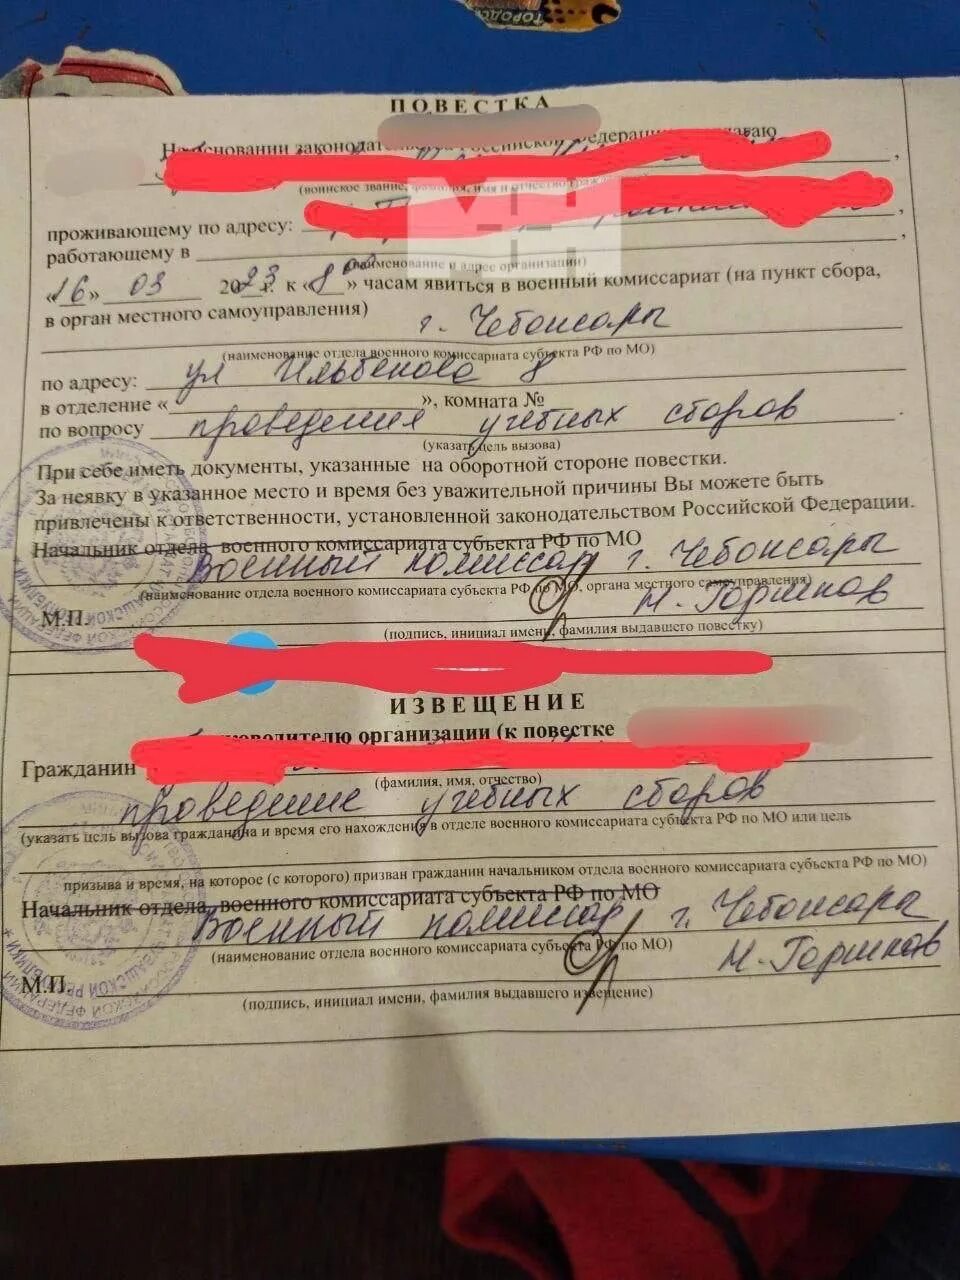 ПОВЕСТКА
На основании законодательства Российской Федерации
(воинское звание, фамилия, имя и отчество
проживающему по адресу:
работающему в
(наименование и адрес организации)
«16» 03 2023 г. к «8 00» часам явиться в военный комиссариат (на пункт сбора,
в орган местного самоуправления)
г. Чебоксары
(наименование отдела военного комиссариата субъекта РФ по МО)
по адресу: ул Ильбекова 8
в отделение « », комната №
по вопросу проведения учебных сборов
(указать цель вызова)
При себе иметь документы, указанные на оборотной стороне повестки.
За неявку в указанное место и время без уважительной причины Вы можете быть
привлечены к ответственности, установленной законодательством Российской Федерации.
Начальник отдела военного комиссариата субъекта РФ по МО
Военный комиссар г. Чебоксары
(наименование отдела военного комиссариата субъекта РФ по МО, органа местного самоуправления)
М.П.
(подпись, инициал имени, фамилия выдавшего повестку)
ИЗВЕЩЕНИЕ
руководителю организации (к повестке
Гражданин
(фамилия, имя, отчество)
проведение учебных сборов
(указать цель вызова гражданина и время его нахождения в отделе военного комиссариата субъекта РФ по МО или цель
призыва и время, на которое (с которого) призван гражданин начальником отдела военного комиссариата субъекта РФ по МО)
Начальник отдела военного комиссариата субъекта РФ по МО
Военный комиссар г. Чебоксары
(наименование отдела военного комиссариата субъекта РФ по МО)
М.П.
(подпись, инициал имени, фамилия выдавшего извещение)